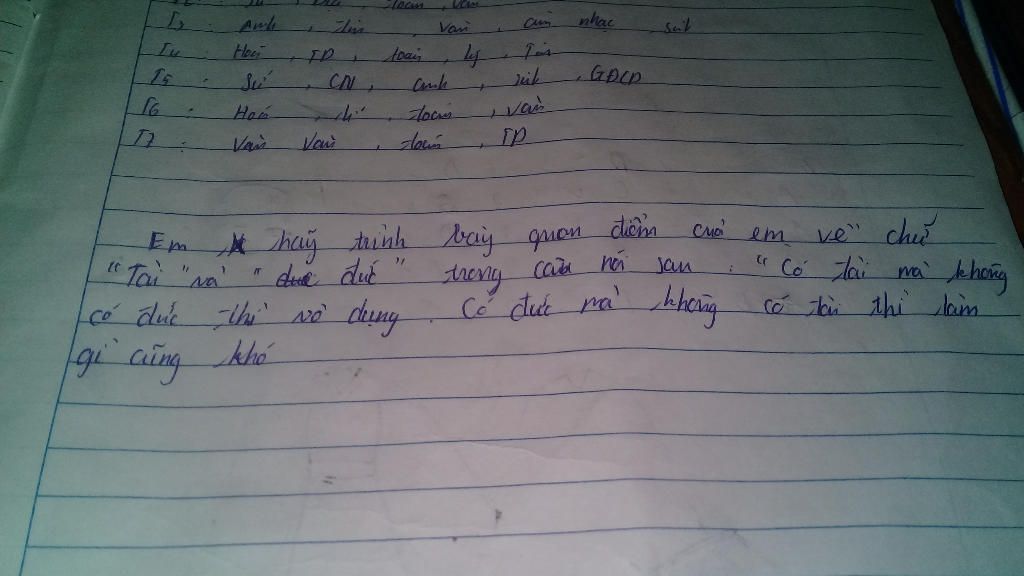 toán, văn
T3 Anh, tin, văn, âm nhạc, sinh
T4 Hoá, TD, toán, lý, Tin
T5 : Sử, CN, anh, sinh, GDCD
T6 : Hoá, lí, toán, văn
T7 : Văn Văn, toán, TD
Em hãy trình bày quan điểm của em về chữ
"Tài" và "đức" trong câu nói sau : "Có tài mà không
có đức thì vô dụng. Có đức mà không có tài thì làm
gì cũng khó